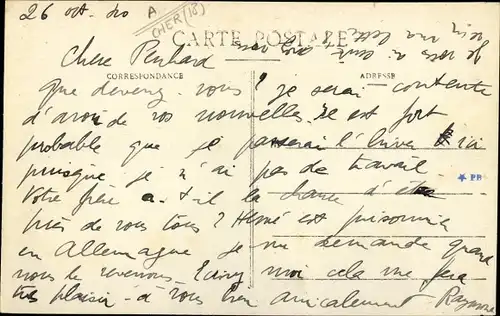 26 oct. 40
A
CHER (18)
CARTE POSTALE
Chere Penhard
CORRESPONDANCE
ADRESSE
que devenez-vous ? je serai contente
d'avoir de vos nouvelles. Il est fort
probable que je passerai l'hiver ici
puisque je n'ai pas de travail
Votre frère a-t-il la chance d'être
près de vous tous ? Hervé est prisonnier
en Allemagne je me demande quand
nous le reverrons - Ecrivez moi cela me fera
très plaisir - à vous bien amicalement Raymonde